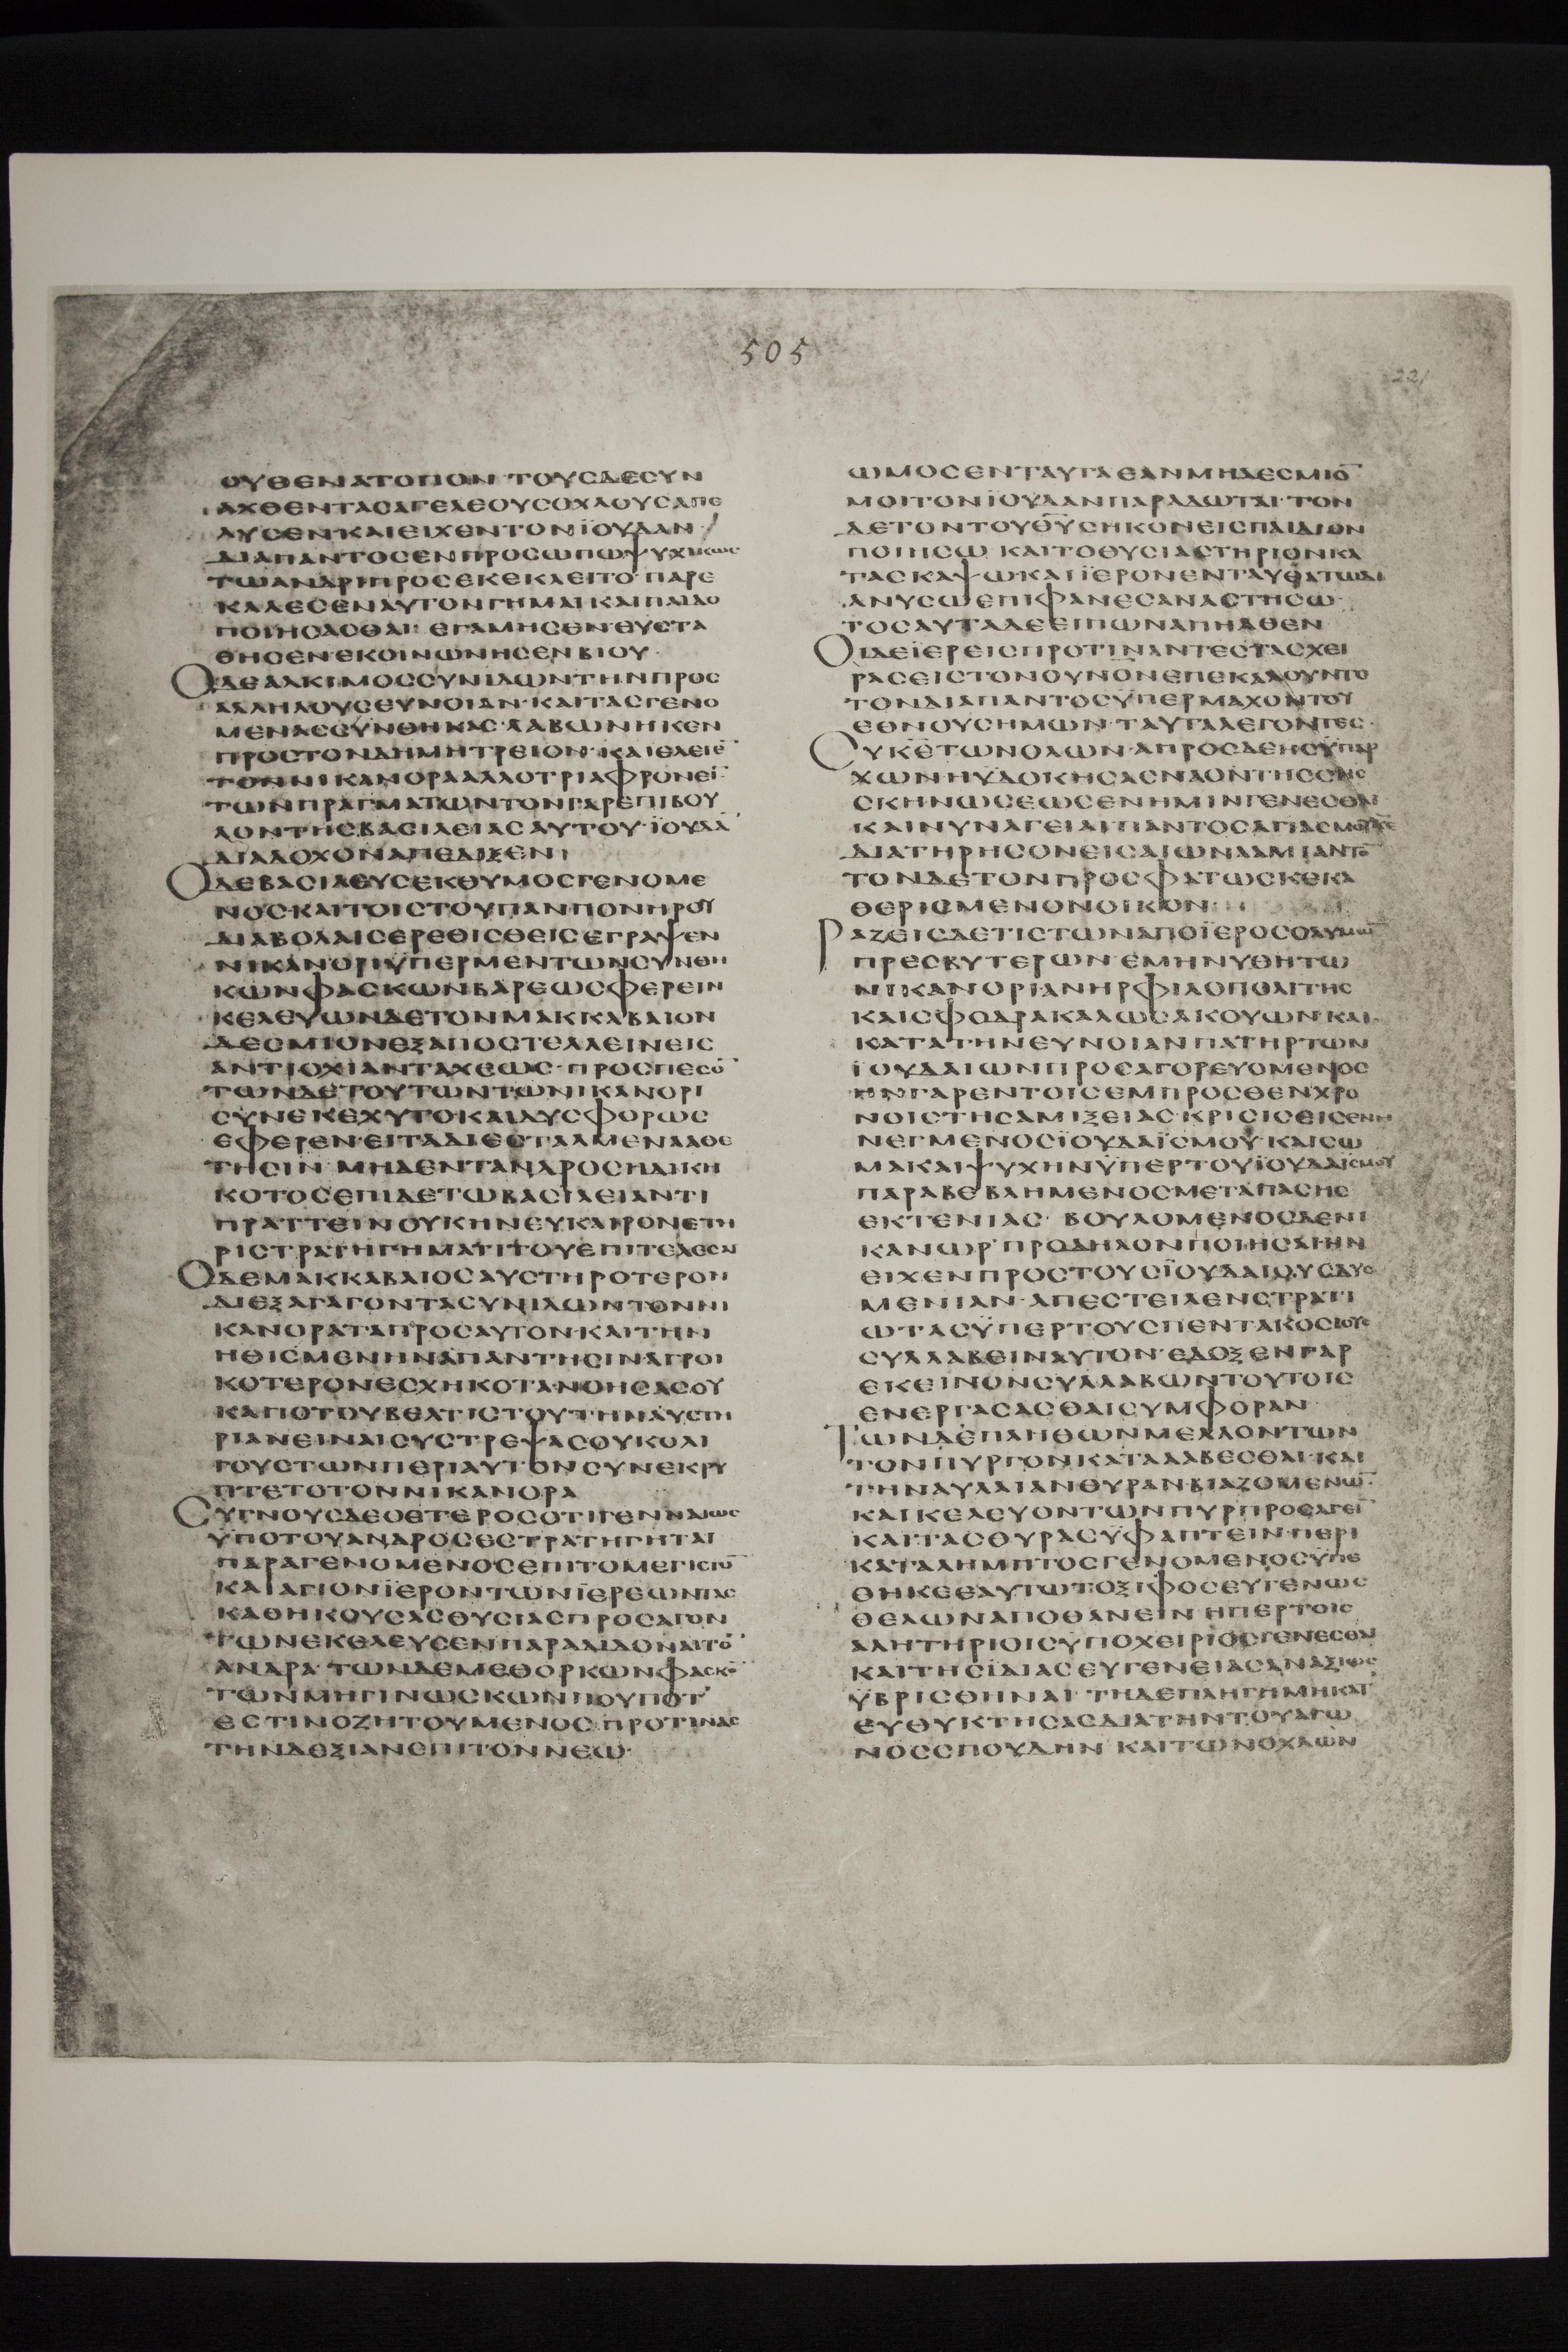 505
221
ΟΥΘΕΝΑΤΟΠΟΝ·ΤΟΥСΔΕСΥΝ
ΑΧΘΕΝΤΑСΑΓΕΛΕΟΥСΟΧΛΟΥСΑΠΕ
ΛΥСΕΝΚΑΙΕΙΧΕΝΤΟΝΪΟΥΔΑΝ
ΔΙΑΠΑΝΤΟСΕΝΠΡΟСΩΠΩΨΥΧΙΚΩС
ΤΩΑΝΔΡΙΠΡΟСΕΚΕΚΛΕΙΤΟ·ΠΑΡΕ
ΚΑΛΕСΕΝΑΥΤΟΝΓΗΜΑΙΚΑΙΠΑΙΔΟ
ΠΟΙΗСΑСΘΑΙ·ΕΓΑΜΗСΕΝ·ΕΥСΤΑ
ΘΗСΕΝ·ΕΚΟΙΝΩΝΗСΕΝΒΙΟΥ·
ΟΔΕΑΛΚΙΜΟССΥΝΙΔΩΝΤΗΝΠΡΟС
ΑΛΛΗΛΟΥСΕΥΝΟΙΑΝ·ΚΑΙΤΑСΓΕΝΟ
ΜΕΝΑССΥΝΘΗΚΑС·ΛΑΒΩΝΗΚΕΝ
ΠΡΟСΤΟΝΔΗΜΗΤΡΕΙΟΝ·ΚΑΙΕΛΕΓΕ̅
ΤΟΝΝΙΚΑΝΟΡΑΑΛΛΟΤΡΙΑΦΡΟΝΕΙ̅
ΤΩΝΠΡΑΓΜΑΤΩΝΤΟΝΓΑΡΕΠΙΒΟΥ
ΛΟΝΤΗСΒΑСΙΛΕΙΑСΑΥΤΟΥ·ΪΟΥΔΑ̅
ΔΙΑΔΟΧΟΝΑΠΕΔΙΞΕΝ
ΟΔΕΒΑСΙΛΕΥСΕΚΘΥΜΟСΓΕΝΟΜΕ
ΝΟС·ΚΑΙΤΟΙСΤΟΥΠΑΝΠΟΝΗΡΟΥ
ΔΙΑΒΟΛΑΙСΕΡΕΘΙСΘΕΙСΕΓΡΑΨΕΝ
ΝΙΚΑΝΟΡΙΫΠΕΡΜΕΝΤΩΝСΥΝΘΗ
ΚΩΝΦΑСΚΩΝΒΑΡΕΩСΦΕΡΕΙΝ
ΚΕΛΕΥΩΝΔΕΤΟΝΜΑΚΚΑΒΑΙΟΝ
ΔΕСΜΙΟΝΕΞΑΠΟСΤΕΛΛΕΙΝΕΙС
ΑΝΤΙΟΧΙΑΝΤΑΧΕΩС·ΠΡΟСΠΕСΟ̅
ΤΩΝΔΕΤΟΥΤΩΝΤΩΝΙΚΑΝΟΡΙ
СΥΝΕΚΕΧΥΤΟΚΑΙΔΥСΦΟΡΩС
ΕΦΕΡΕΝ·ΕΙΤΑΔΙΕСΤΑΛΜΕΝΑΑΘΕ
ΤΗСΙΝ·ΜΗΔΕΝΤΑΝΔΡΟСΗΔΙΚΗ
ΚΟΤΟСΕΠΙΔΕΤΩΒΑСΙΛΕΙΑΝΤΙ
ΠΡΑΤΤΕΙΝΟΥΚΗΝΕΥΚΑΙΡΟΝΕΤΗ
ΡΙСΤΡΑΤΗΓΗΜΑΤΙΤΟΥΕΠΙΤΕΛΕСΑΙ
ΟΔΕΜΑΚΚΑΒΑΙΟСΑΥСΤΗΡΟΤΕΡΟΝ
ΔΙΕΞΑΓΑΓΟΝΤΑСΥΝΙΔΩΝΤΟΝΝΙ
ΚΑΝΟΡΑΤΑΠΡΟСΑΥΤΟΝ·ΚΑΙΤΗΝ
ΗΘΙСΜΕΝΗΝΑΠΑΝΤΗСΙΝΑΓΡΟΙ
ΚΟΤΕΡΟΝΕСΧΗΚΟΤΑ·ΝΟΗСΑСΟΥ
ΚΑΠΟΤΟΥΒΕΛΤΙСΤΟΥΤΗΝΑΥСΤΗ
ΡΙΑΝΕΙΝΑΙСΥСΤΡΕΨΑСΟΥΚΟΛΙ
ΓΟΥСΤΩΝΠΕΡΙΑΥΤΟΝСΥΝΕΚΡΥ
ΠΤΕΤΟΤΟΝΝΙΚΑΝΟΡΑ
СΥΓΝΟΥСΔΕΟΕΤΕΡΟСΟΤΙΓΕΝΝΑΙΩС
ΫΠΟΤΟΥΑΝΔΡΟСΕСΤΡΑΤΗΓΗΤΑΙ
ΠΑΡΑΓΕΝΟΜΕΝΟСΕΠΙΤΟΜΕΓΙСΤΟ̅
ΚΑΙΑΓΙΟΝΪΕΡΟΝΤΩΝΪΕΡΕΩΝΤΑС
ΚΑΘΗΚΟΥСΑСΘΥСΙΑСΠΡΟСΑΓΟΝ
ΤΩΝΕΚΕΛΕΥСΕΝΠΑΡΑΔΙΔΟΝΑΙΤΟ̅
ΑΝΔΡΑ·ΤΩΝΔΕΜΕΘΟΡΚΩΝΦΑСΚΟ̅
ΤΩΝΜΗΓΙΝΩСΚΩΝΠΟΥΠΟΤ
ΕСΤΙΝΟΖΗΤΟΥΜΕΝΟС·ΠΡΟΤΙΝΑС
ΤΗΝΔΕΞΙΑΝΕΠΙΤΟΝΝΕΩ·
ΩΜΟСΕΝΤΑΥΤΑΕΑΝΜΗΔΕСΜΙΟ̅
ΜΟΙΤΟΝΪΟΥΔΑΝΠΑΡΑΔΩΤΑΙ·ΤΟΝ
ΔΕΤΟΝΤΟΥΘ̅Υ̅СΗΚΟΝΕΙСΠΑΙΔΙΟΝ
ΠΟΙΗСΩ·ΚΑΙΤΟΘΥСΙΑСΤΗΡΙΟΝΚΑ
ΤΑСΚΑΨΩ·ΚΑΙΪΕΡΟΝΕΝΤΑΥΘΑΤΩΔΙ
ΑΝΥСΩΕΠΙΦΑΝΕСΑΝΑСΤΗСΩ·
ΤΟСΑΥΤΑΔΕΕΙΠΩΝΑΠΗΛΘΕΝ
ΟΙΔΕΪΕΡΕΙСΠΡΟΤΙΝΑΝΤΕСΤΑСΧΕΙ
ΡΑСΕΙСΤΟΝΟΥΝΟΝΕΠΕΚΑΛΟΥΝΤΟ
ΤΟΝΔΙΑΠΑΝΤΟСΫΠΕΡΜΑΧΟΝΤΟΥ
ΕΘΝΟΥСΗΜΩΝ·ΤΑΥΤΑΛΕΓΟΝΤΕС·
СΥΚΕΤΩΝΟΛΩΝ·ΑΠΡΟСΔΕΗСΫΠΑΡ
ΧΩΝΗΥΔΟΚΗСΑСΝΑΟΝΤΗССΗС
СΚΗΝΩСΕΩСΕΝΗΜΙΝΓΕΝΕСΘΑΙ
ΔΙΑΤΗΡΗСΟΝΕΙСΑΙΩΝΑΑΜΙΑΝΤΟ̅
ΤΟΝΔΕΤΟΝΠΡΟСΦΑΤΩСΚΕΚΑ
ΘΕΡΙСΜΕΝΟΝΟΙΚΟΝ·
ΡΑΖΕΙСΔΕΤΙСΤΩΝΑΠΟΪΕΡΟСΟΛΥΜΩ̅
ΠΡΕСΒΥΤΕΡΩΝ·ΕΜΗΝΥΘΗΤΩ
ΝΙΚΑΝΟΡΙ·ΑΝΗΡΦΙΛΟΠΟΛΙΤΗС
ΚΑΙСΦΟΔΡΑΚΑΛΩСΑΚΟΥΩΝ·ΚΑΙ
ΚΑΤΑΤΗΝΕΥΝΟΙΑΝΠΑΤΗΡΤΩΝ
ΪΟΥΔΑΙΩΝΠΡΟСΑΓΟΡΕΥΟΜΕΝΟС
ΗΝΓΑΡΕΝΤΟΙСΕΜΠΡΟСΘΕΝΧΡΟ
ΝΟΙСΤΗСΑΜΙΞΕΙΑС·ΚΡΙСΙСΕΙСΕΝΗ
ΝΕΓΜΕΝΟСΪΟΥΔΑΪСΜΟΥ·ΚΑΙСΩ
ΜΑΚΑΙΨΥΧΗΝΫΠΕΡΤΟΥΪΟΥΔΑΪСΜΟΥ
ΠΑΡΑΒΕΒΛΗΜΕΝΟСΜΕΤΑΠΑСΗС
ΕΚΤΕΝΙΑС·ΒΟΥΛΟΜΕΝΟСΔΕΝΙ
ΚΑΝΩΡ·ΠΡΟΔΗΛΟΝΠΟΙΗСΑΙΗΝ
ΕΙΧΕΝΠΡΟСΤΟΥСΪΟΥΔΑΙΟΥСΔΥС
ΜΕΝΙΑΝ·ΑΠΕСΤΕΙΛΕΝСΤΡΑΤΙ
ΩΤΑСΫΠΕΡΤΟΥСΠΕΝΤΑΚΟСΙΟΥС
СΥΛΛΑΒΕΙΝΑΥΤΟΝ·ΕΔΟΞΕΝΓΑΡ
ΕΚΕΙΝΟΝСΥΛΛΑΒΩΝΤΟΥΤΟΙС
ΕΝΕΡΓΑСΑСΘΑΙСΥΜΦΟΡΑΝ
ΤΩΝΔΕΠΛΗΘΩΝΜΕΛΛΟΝΤΩΝ
ΤΟΝΠΥΡΓΟΝΚΑΤΑΛΑΒΕСΘΑΙ·ΚΑΙ
ΤΗΝΑΥΛΑΙΑΝΘΥΡΑΝ·ΒΙΑΖΟΜΕΝΩ̅
ΚΑΙΚΕΛΕΥΟΝΤΩΝΠΥΡΠΡΟСΑΓΕΙ̅
ΚΑΙΤΑСΘΥΡΑСΥΦΑΠΤΕΙΝ·ΠΕΡΙ
ΚΑΤΑΛΗΜΠΤΟСΓΕΝΟΜΕΝΟСΫΠΕ
ΘΗΚΕΕΑΥΤΩΤΟΞΙΦΟСΕΥΓΕΝΩС
ΘΕΛΩΝΑΠΟΘΑΝΕΙΝ·ΗΠΕΡΤΟΙС
ΑΛΗΤΗΡΙΟΙСΥΠΟΧΕΙΡΙΟСΓΕΝΕСΘΑΙ
ΚΑΙΤΗСΙΔΙΑСΕΥΓΕΝΕΙΑСΑΝΑΞΙΩС
ΫΒΡΙСΘΗΝΑΙ·ΤΗΔΕΠΛΗΓΗΜΗΚΑΤ
ΕΥΘΥΚΤΗСΑСΔΙΑΤΗΝΤΟΥΑΓΩ
ΝΟССΠΟΥΔΗΝ·ΚΑΙΤΩΝΟΧΛΩΝ